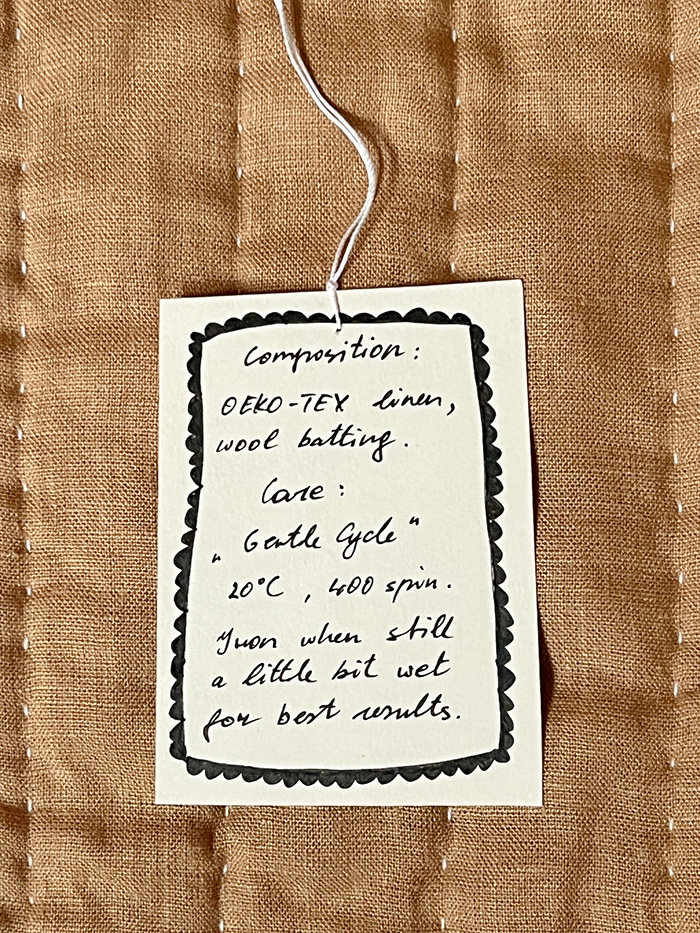 Composition:
OEKO-TEX linen,
wool batting.
Care:
„Gentle Cycle"
20°C, 400 spin.
Iron when still
a little bit wet
for best results.